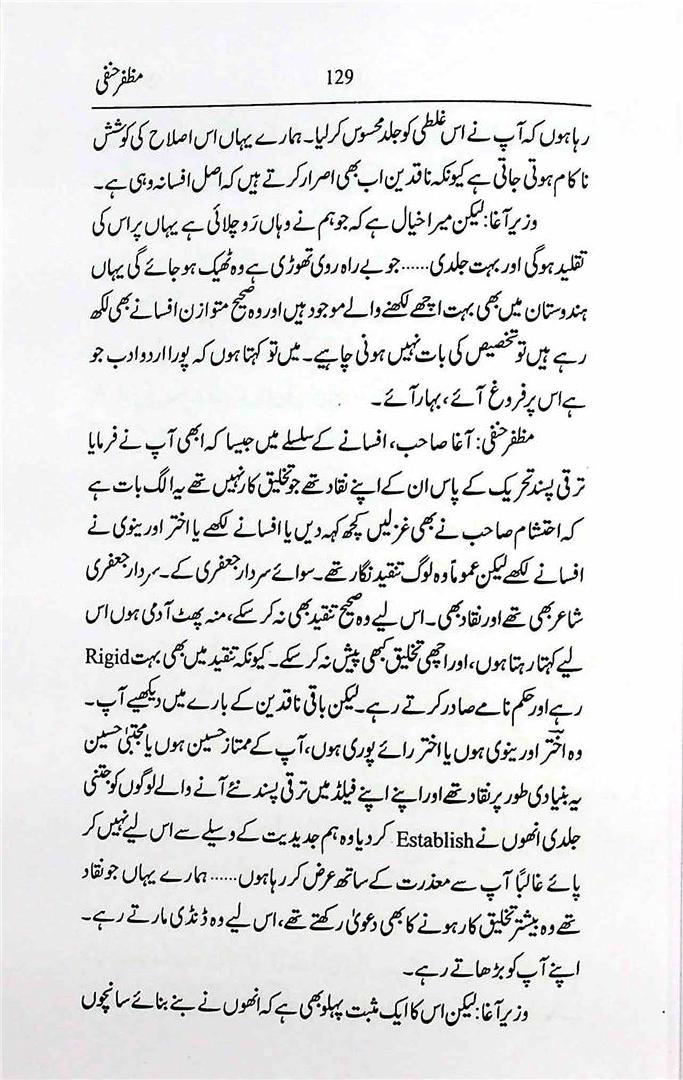 مظفر حنفی
129
رہا ہوں کہ آپ نے اس غلطی کو جلد محسوس کر لیا۔ ہمارے یہاں اس اصلاح کی کوشش
ناکام ہوتی جاتی ہے کیونکہ ناقدین اب بھی اصرار کرتے ہیں کہ اصل افسانہ وہی ہے۔
وزیر آغا: لیکن میرا خیال ہے کہ جو ہم نے وہاں رَو چلائی ہے یہاں پر اس کی
تقلید ہوگی اور بہت جلدی...... جو بے راہ روی تھوڑی ہے وہ ٹھیک ہو جائے گی یہاں
ہندوستان میں بھی بہت اچھے لکھنے والے موجود ہیں اور وہ صحیح متوازن افسانے بھی لکھ
رہے ہیں تو تخصیص کی بات نہیں ہونی چاہیے۔ میں تو کہتا ہوں کہ پورا اردو ادب جو
ہے اس پر فروغ آئے، بہار آئے۔
مظفر حنفی: آغا صاحب، افسانے کے سلسلے میں جیسا کہ ابھی آپ نے فرمایا
ترقی پسند تحریک کے پاس ان کے اپنے نقاد تھے جو تخلیق کار نہیں تھے یہ الگ بات ہے
کہ احتشام صاحب نے بھی غزلیں کچھ کہہ دیں یا افسانے لکھے یا اختر اورینوی نے
افسانے لکھے لیکن عموماً وہ لوگ تنقید نگار تھے۔ سوائے سردار جعفری کے۔ سردار جعفری
شاعر بھی تھے اور نقاد بھی۔ اس لیے وہ صحیح تنقید بھی نہ کر سکے، منہ پھٹ آدمی ہوں اس
لیے کہتا رہتا ہوں، اور اچھی تخلیق کبھی پیش نہ کر سکے۔ کیونکہ تنقید میں بھی بہت Rigid
رہے اور حکم نامے صادر کرتے رہے۔ لیکن باقی ناقدین کے بارے میں دیکھیے آپ۔
وہ اختر اورینوی ہوں یا اختر رائے پوری ہوں، آپ کے ممتاز حسین ہوں یا مجتبیٰ حسین
یہ بنیادی طور پر نقاد تھے اور اپنے اپنے فیلڈ میں ترقی پسند نئے آنے والے لوگوں کو جتنی
جلدی انھوں نے Establish کر دیا وہ ہم جدیدیت کے وسیلے سے اس لیے نہیں کر
پائے غالباً آپ سے معذرت کے ساتھ عرض کر رہا ہوں...... ہمارے یہاں جو نقاد
تھے وہ بیشتر تخلیق کار ہونے کا بھی دعویٰ رکھتے تھے، اس لیے وہ ڈنڈی مارتے رہے۔
اپنے آپ کو بڑھاتے رہے۔
وزیر آغا: لیکن اس کا ایک مثبت پہلو بھی ہے کہ انھوں نے بنے بنائے سانچوں